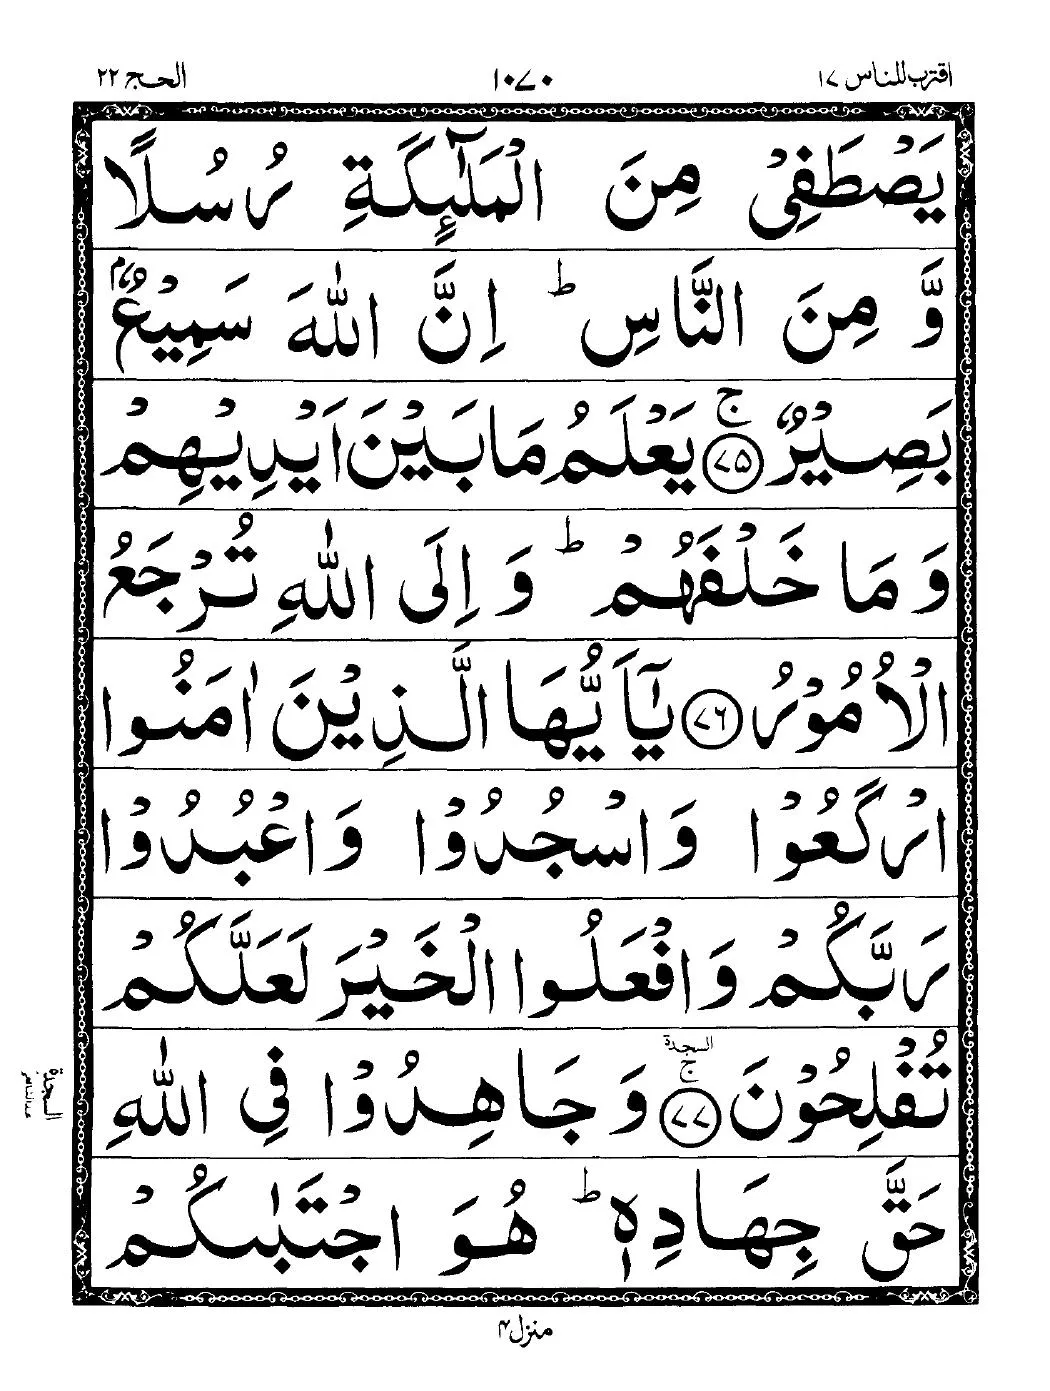 اقترب للناس ۱۷
۱۰۷۰
الحج ۲۲
يَصْطَفِيْ مِنَ الْمَلٰٓئِكَةِ رُسُلًا
وَّ مِنَ النَّاسِ ؕ اِنَّ اللّٰهَ سَمِيْعٌۢ
بَصِيْرٌ ۚ﴿۷۵﴾ يَعْلَمُ مَا بَيْنَ اَيْدِيْهِمْ
وَ مَا خَلْفَهُمْ ؕ وَ اِلَى اللّٰهِ تُرْجَعُ
الْاُمُوْرُ ﴿۷۶﴾ يٰۤاَيُّهَا الَّذِيْنَ اٰمَنُوا
ارْكَعُوْا وَ اسْجُدُوْا وَ اعْبُدُوْا
رَبَّكُمْ وَ افْعَلُوا الْخَيْرَ لَعَلَّكُمْ
تُفْلِحُوْنَ السجدة ۚ﴿۷۷﴾ وَ جَاهِدُوْا فِي اللّٰهِ
السجدة
حَقَّ جِهَادِهٖ ؕ هُوَ اجْتَبٰىكُمْ
منزل ۴